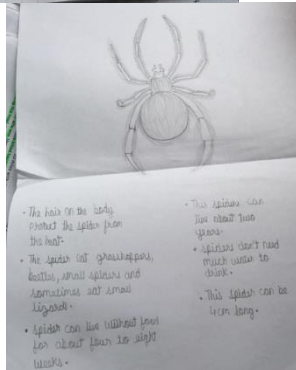 • The hair on the body
protect the spider from
the heat.
• The spider eat grasshoppers,
beetles, small spiders and
sometimes eat small
lizards.
• Spider can live without food
for about four to eight
weeks.
• This spiders can
live about two
years.
• spiders don't need
much water to
drink.
• This spider can be
4cm long.